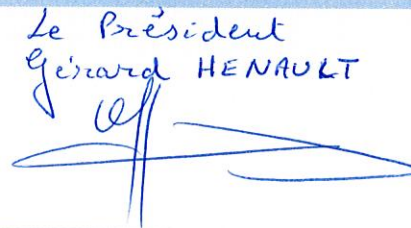 Le Président
Gérard HENAULT